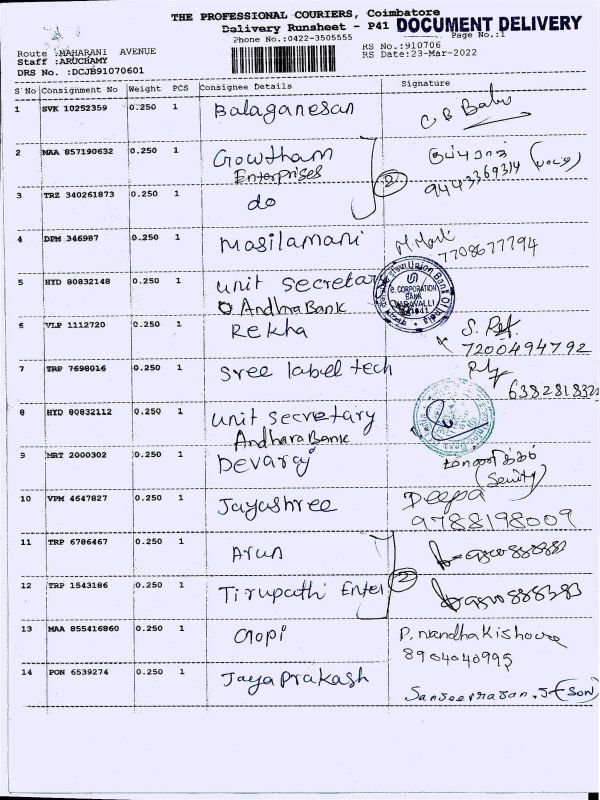 THE PROFESSIONAL COURIERS, Coimbatore
Delivery Runsheet - P41 DOCUMENT DELIVERY
Phone No.:0422-3505555 Page No.:1
Route :MAHARANI AVENUE RS No.:910706
Staff :ARUCHAMY RS Date:23-Mar-2022
DRS No. :DCJB91070601
S No Consignment No Weight PCS Consignee Details Signature
1 SVK 10252359 0.250 1 Balaganesan C B Babu
2 MAA 857190632 0.250 1 Gowtham
Enterprises 2 9443369314
3 TRZ 340261873 0.250 1 do
4 DPM 346987 0.250 1 Masilamani 7708677794
5 HYD 80832148 0.250 1 unit secretary
Andhra Bank
Union Bank Of India
e. CORPORATION
BANK
6 VLP 1112720 0.250 1 Rekha 7200494792
7 TRP 7698016 0.250 1 Sree label tech
8 HYD 80832112 0.250 1 unit secretary
Andhara Bank
9 MRT 2000302 0.250 1 Devaraj
10 VPM 4647827 0.250 1 Jayashree Deepa
9788198009
11 TRP 6786467 0.250 1 Arun
2
12 TRP 1543186 0.250 1 Tirupathi Enter
13 MAA 855416860 0.250 1 Gopi P. Nandha Kishore
8904040995
14 PON 6539274 0.250 1 Jaya Prakash (Son)